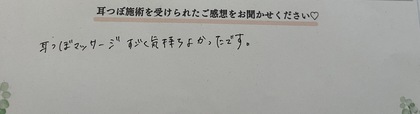 耳つぼ施術を受けられたご感想をお聞かせください♡
耳つぼマッサージ すごく気持ちよかったです。